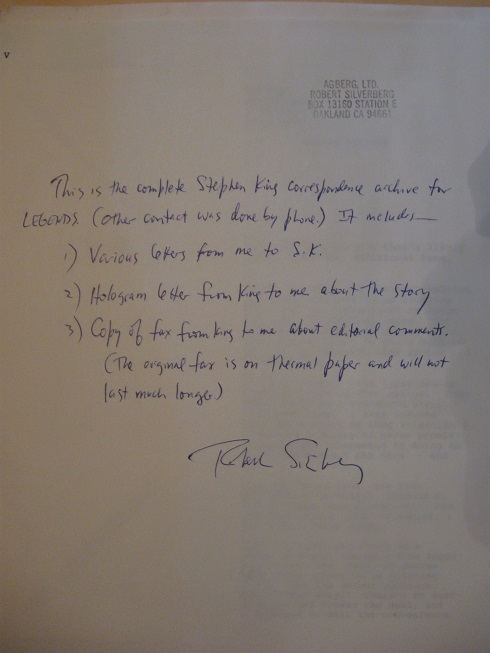 AGBERG, LTD.
ROBERT SILVERBERG
BOX 13160 STATION E
OAKLAND CA 94661
This is the complete Stephen King correspondence archive for
LEGENDS. (Other contact was done by phone.) It includes—
1) Various letters from me to S.K.
2) Hologram letter from King to me about the story
3) Copy of fax from King to me about editorial comments.
(The original fax is on thermal paper and will not
last much longer.)
Robert Silverberg